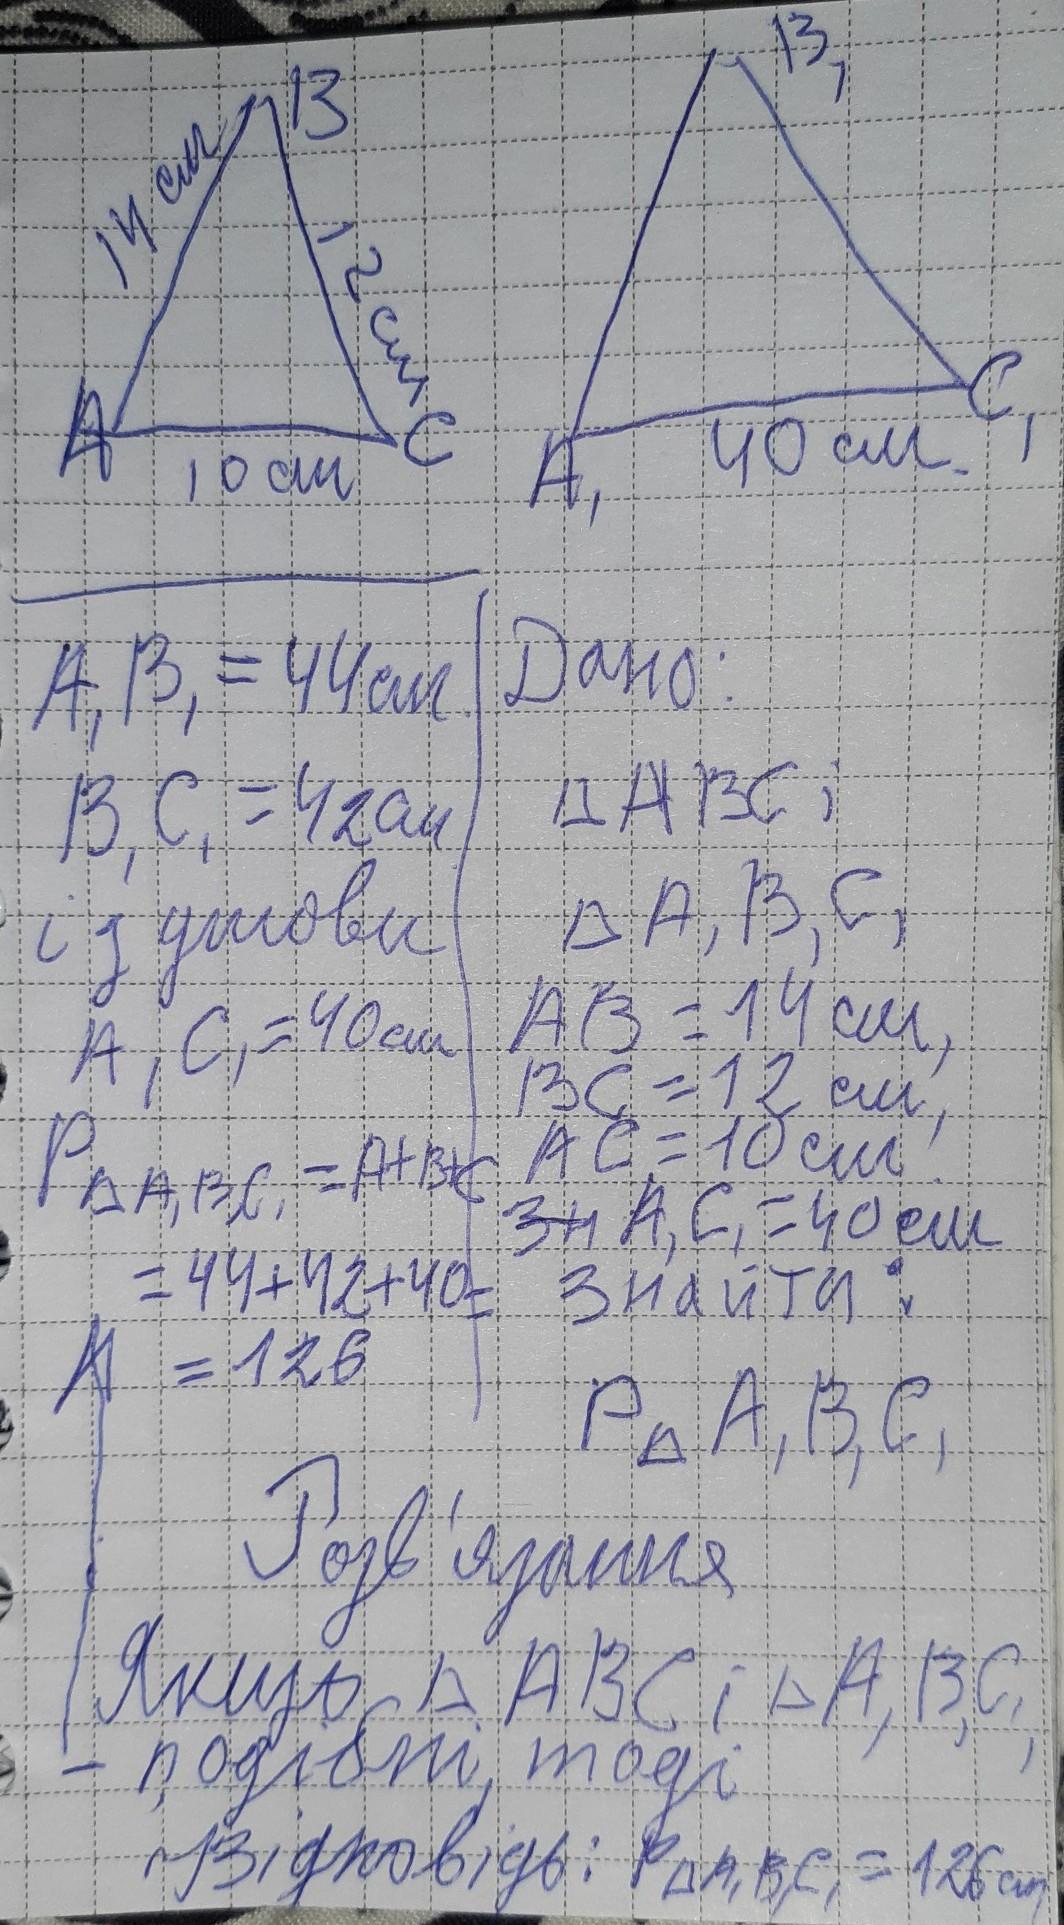 B
B₁
14 см
12 см
A
C
10 см
A₁
C₁
40 см.
A₁B₁ = 44 см
B₁C₁ = 42 см
і з умови
A₁C₁ = 40 см
P△A₁B₁C₁ = A+B+C
= 44+42+40 =
= 126
Дано:
△ABC і
△A₁B₁C₁
AB = 14 см,
BC = 12 см,
AC = 10 см.
A₁C₁ = 40 см
Знайти:
P△A₁B₁C₁
Розв'язання
Якщо △ABC і △A₁B₁C₁
- подібні, тоді
Відповідь: P△A₁B₁C₁ = 126 см